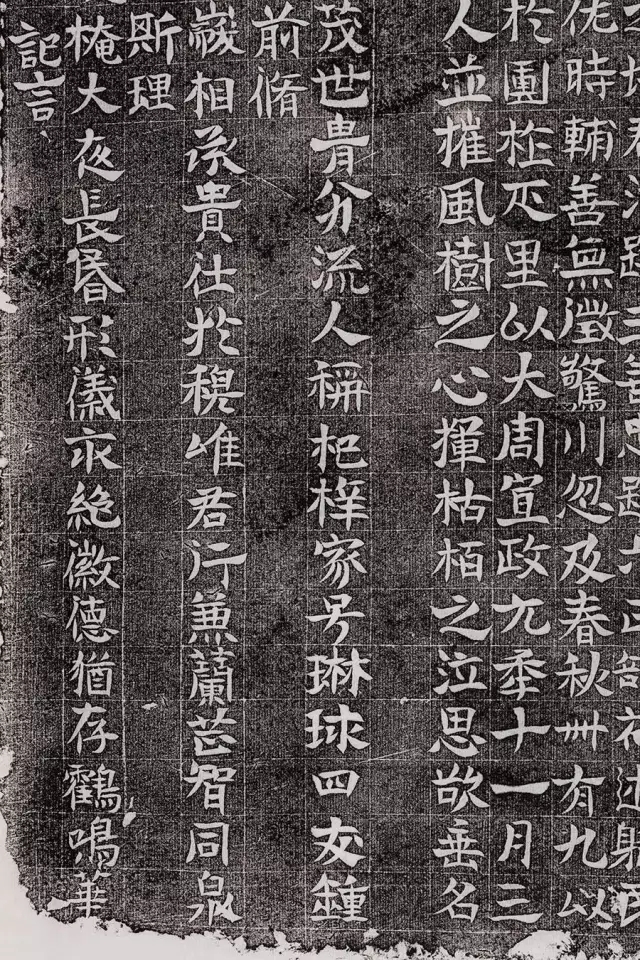 時輔善無徵驚川忽及春秋卌有九以
於里以大周宣政元秊十一月三
人並摧風樹之心揮枯栢之泣思欲垂名
茂世胄分流人稱杞梓家号琳球四友鍾
前脩
嵗相承貴仕於穆唯君行兼蘭芷智同泉
斯理
掩大夜長昏形儀永絕徽德猶存鸛鳴華
記言